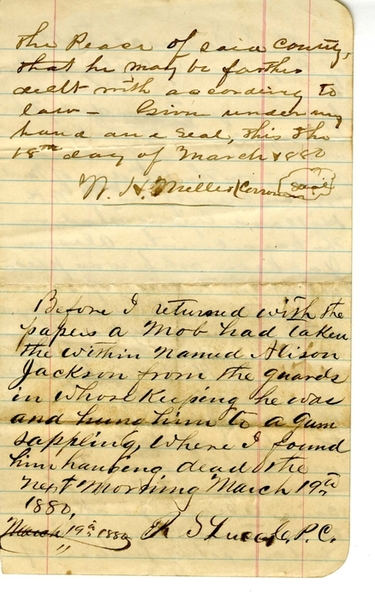 the Peace of said County,
that he may be further
dealt with according to
law - Given under my
hand and seal, this the
18th day of March 1880
W. H. Miller Coroner Seal
Before I returned with the
papers a Mob had taken
the within Named Alison
Jackson from the guards
in whose Keeping he was
and hung him to a gum
sappling, where I found
him hanging dead the
next Morning March 19th
1880,
March 19th 1880 S P.C.